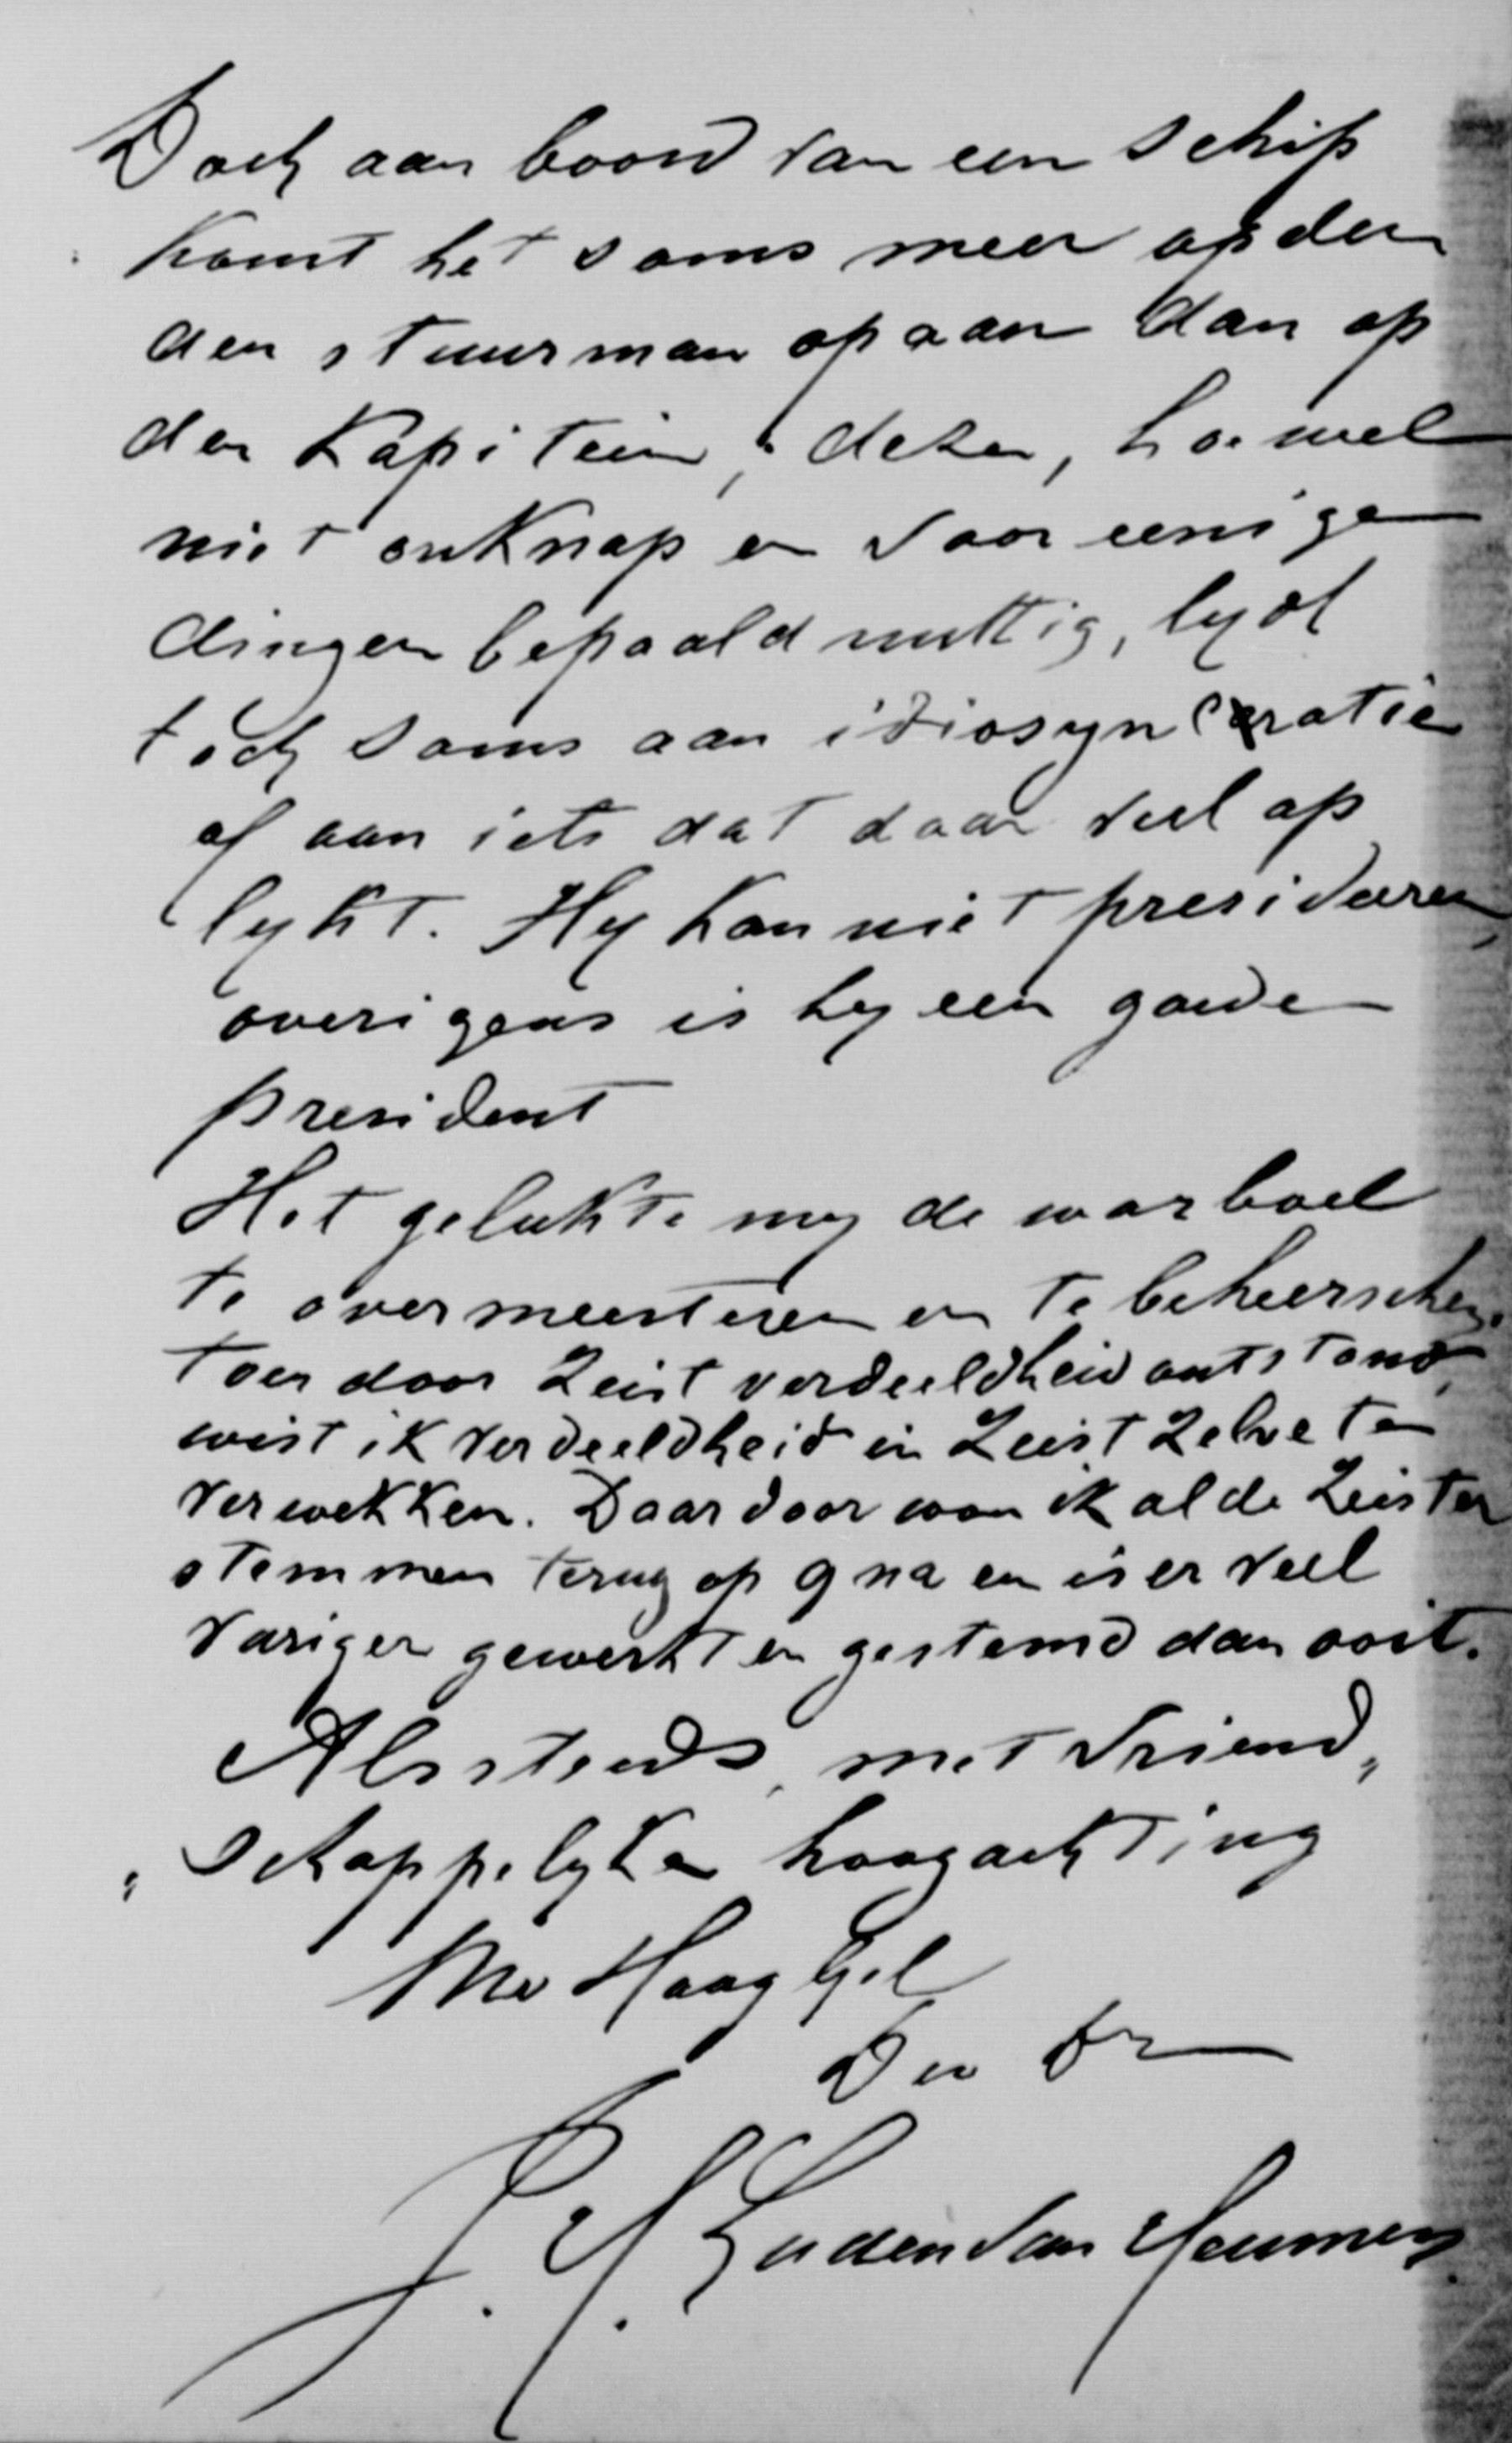 Doch aan boord van een schip
komt het soms meer op den
den stuurman op aan dan op
den Kapitein; dezen, hoewel
niet onknap en voor eenige
dingen bepaald nuttig, lydt
toch soms aan idiosyncratie
of aan iets dat daar veel op
lykt. Hy kan niet presideeren,
overigens is hy een goede
president
Het gelukte my de warboel
te overmeesteren en te beheerschen.
Toen door Zeist verdeeldheid ontstond,
wist ik verdeeldheid in Zeist zelve te
verwekken. Daardoor won ik al de Zeister
stemmen terug op 9 na en is er veel
vuriger gewerkt en gestemd dan ooit.
Als steeds, met vriend„
„schappelyke hoogachting
Uw HoogEd.
Dw Dr
J. H. Luden van Heumen